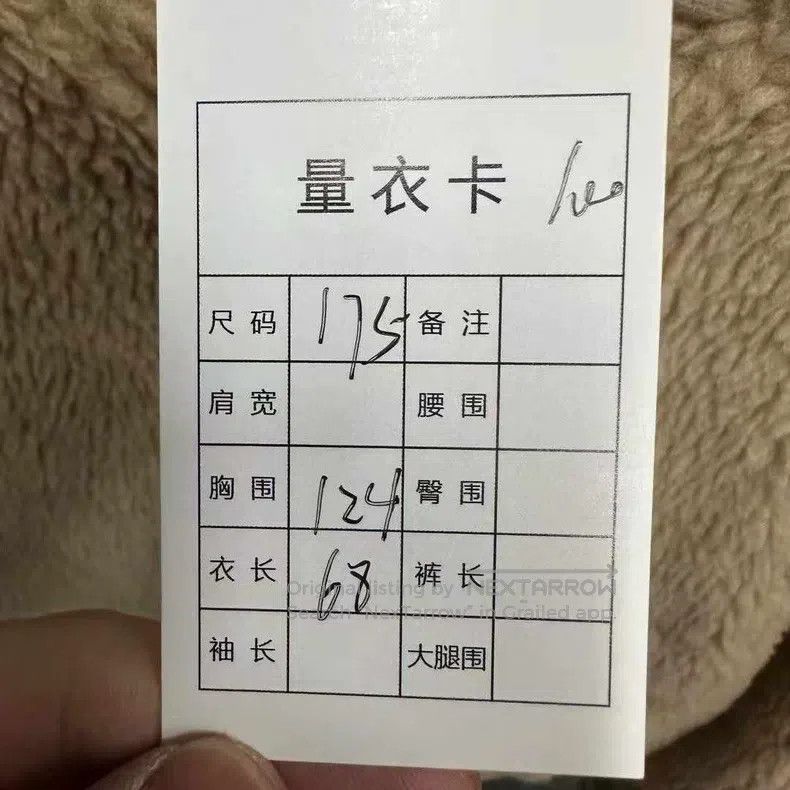 量衣卡
尺码 175 备注
肩宽 腰围
胸围 124 臀围
衣长 68 裤长
Original listing by NEXTARROW
Search "NexTarrow" in Grailed app
袖长 大腿围